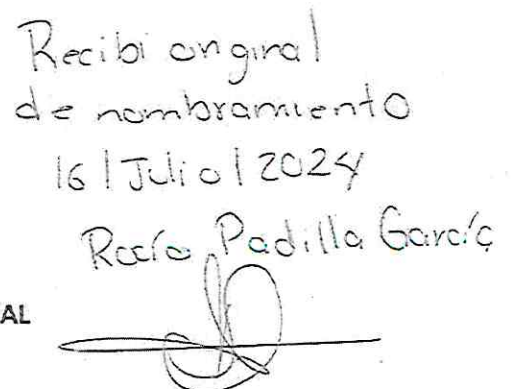 Recibi original
de nombramiento
16 | Julio | 2024
Rocío Padilla García
AL